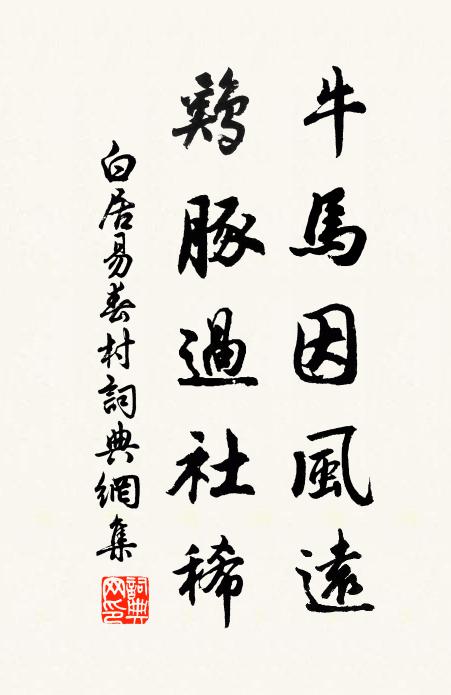 牛馬因風遠
鷄豚過社稀
白居易春村詞典網集
詞典网印